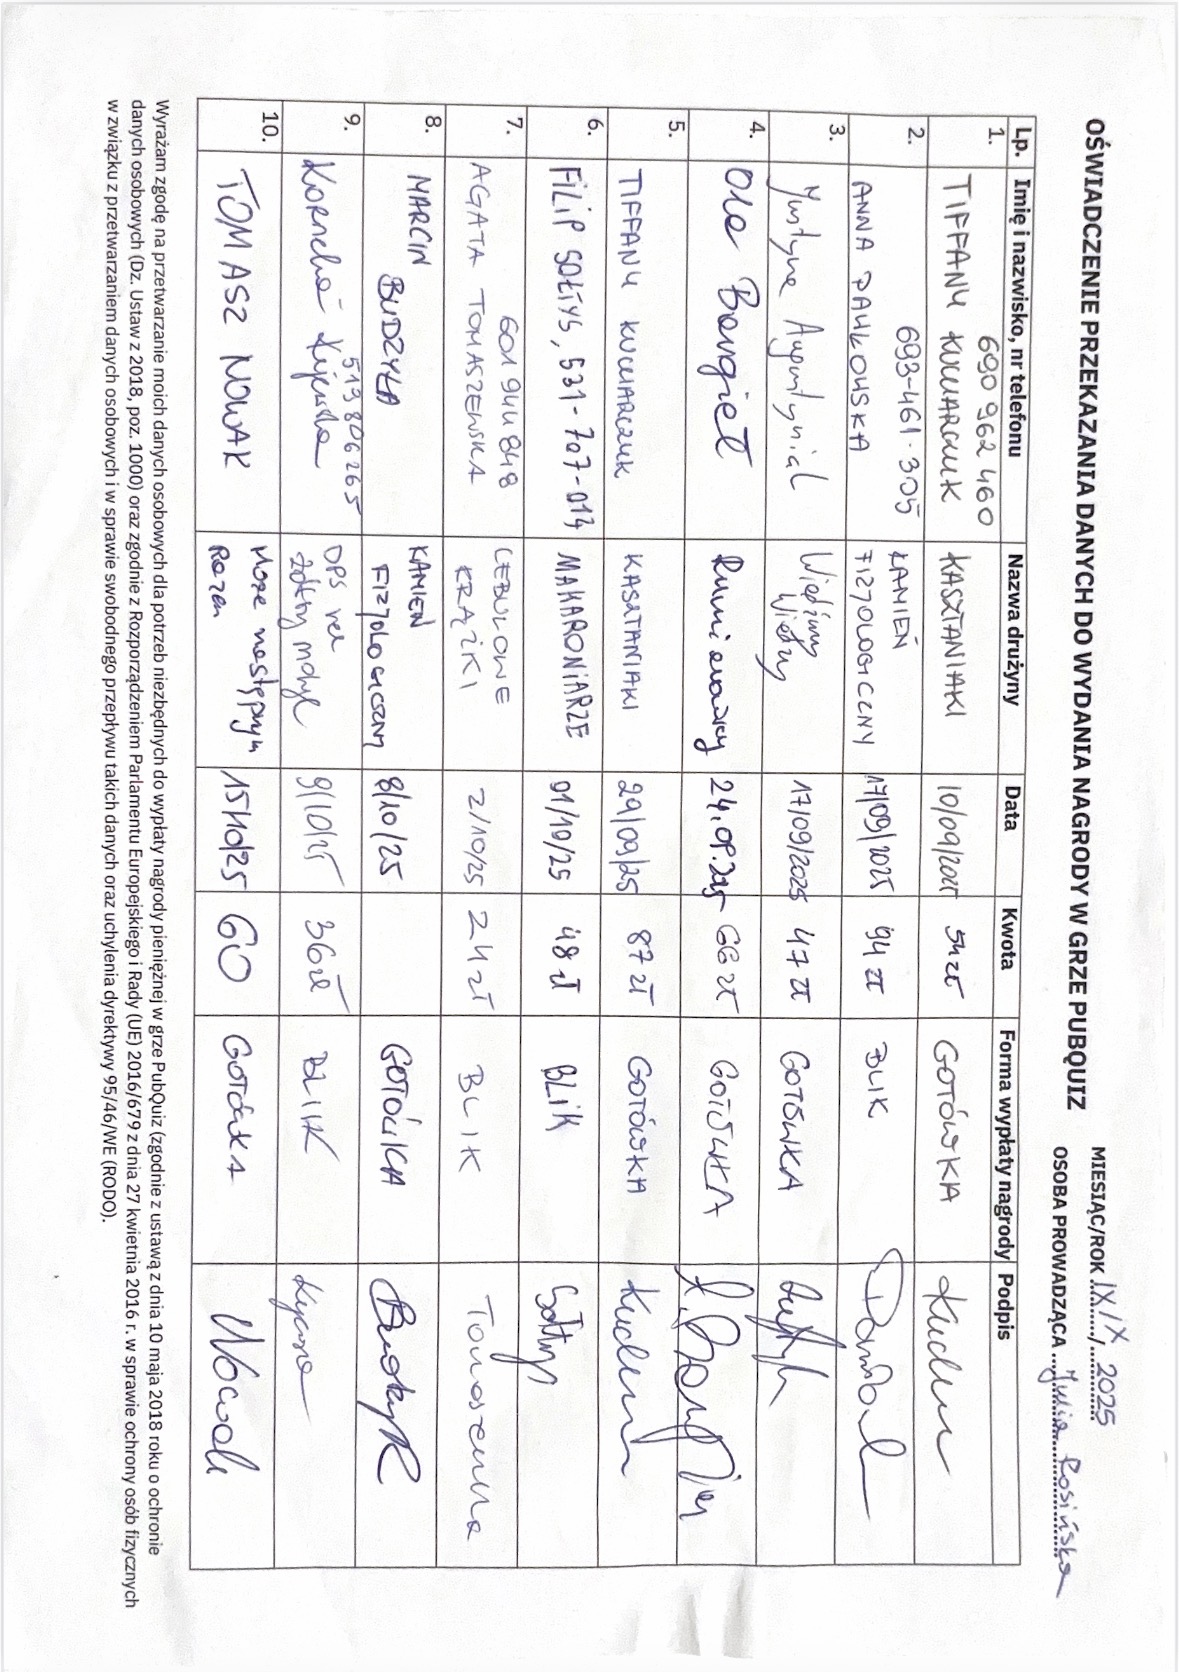 OŚWIADCZENIE PRZEKAZANIA DANYCH DO WYDANIA NAGRODY W GRZE PUBQUIZ
MIESIĄC/ROK IX/X / 2025
OSOBA PROWADZĄCA Julia Rosińska
Lp. Imię i nazwisko, nr telefonu Nazwa drużyny Data Kwota Forma wypłaty nagrody Podpis
1. 690 962 460
TIFFANY KUCHARCZUK KASZTANIAKI 10/09/2025 54 zł GOTÓWKA
2. 693-461-305
ANNA PAWŁOWSKA KAMIEŃ FIZJOLOGICZNY 17/09/2025 94 zł BLIK
3. Justyna Wiedźmy 17/09/2025 47 zł GOTÓWKA
4. Ola Bargieł 24.09.2025 66 zł GOTÓWKA
5. TIFFANY KUCHARCZUK KASZTANIAKI 29/09/25 87 zł GOTÓWKA
6. FILIP SOŁTYS, 531-707-014 MAKARONIARZE 01/10/25 48 zł BLIK Sołtys
7. 601 940 848
AGATA TOMASZEWSKA CEBULOWE KRĄŻKI 2/10/25 24 zł BLIK Tomaszewska
8. MARCIN BUDZYŁA KAMIEŃ FIZJOLOGICZNY 8/10/25 GOTÓWKA
9. 513 806 265
Kornelia DPS na żółty motyl 9/10/25 36 zł BLIK
10. TOMASZ NOWAK Może następnym Razem 15/10/25 60 GOTÓWKA Nowak
Wyrażam zgodę na przetwarzanie moich danych osobowych dla potrzeb niezbędnych do wypłaty nagrody pieniężnej w grze PubQuiz (zgodnie z ustawą z dnia 10 maja 2018 roku o ochronie
danych osobowych (Dz. Ustaw z 2018, poz. 1000) oraz zgodnie z Rozporządzeniem Parlamentu Europejskiego i Rady (UE) 2016/679 z dnia 27 kwietnia 2016 r. w sprawie ochrony osób fizycznych
w związku z przetwarzaniem danych osobowych i w sprawie swobodnego przepływu takich danych oraz uchylenia dyrektywy 95/46/WE (RODO).